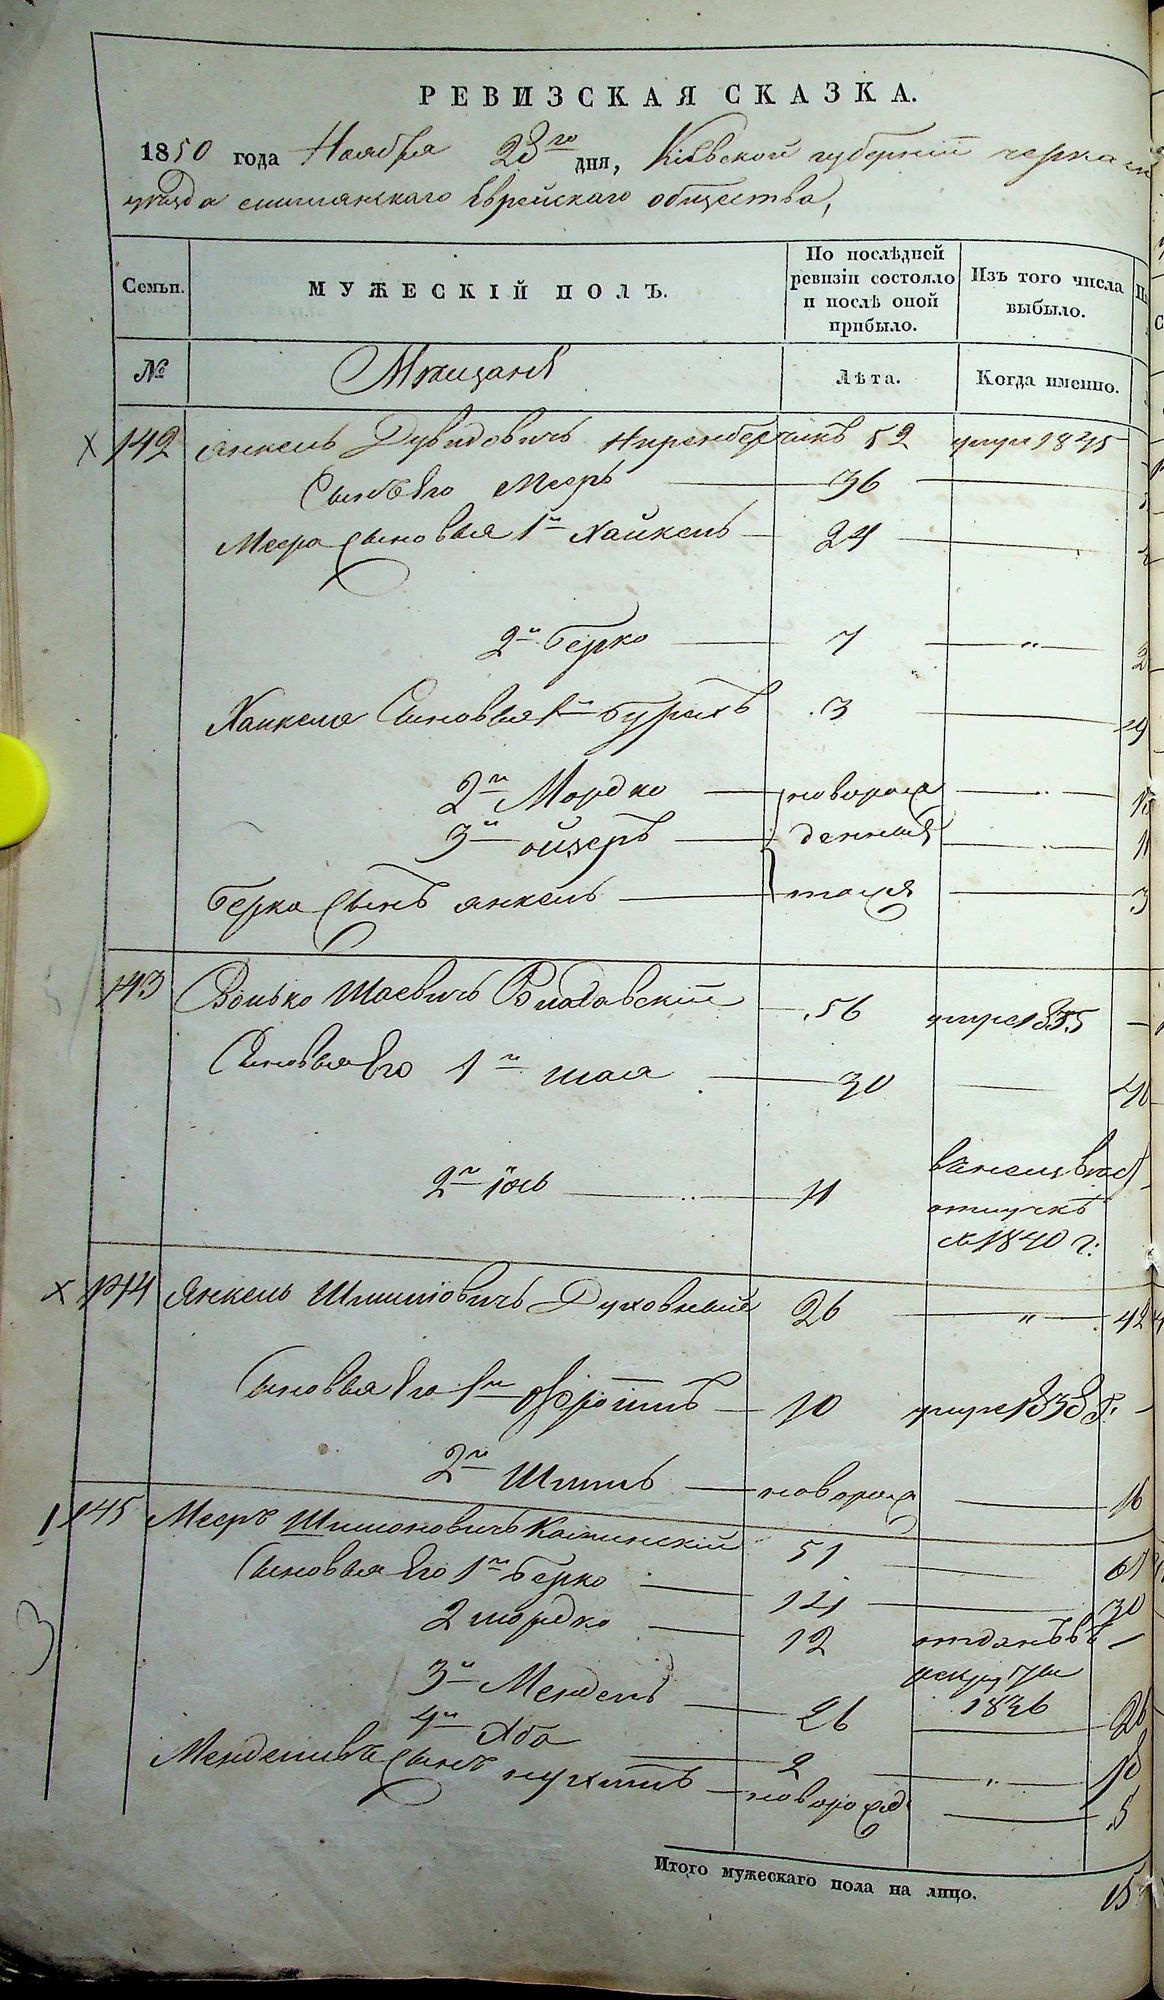 РЕВИЗСКАЯ СКАЗКА.
1850 года Ноября 23го дня, Кіевской губерніи черкаск
уѣзда смилянскаго Еврейскаго общества,
Семьи. МУЖЕСКІЙ ПОЛЪ. По послѣдней ревизіи состояло и послѣ оной прибыло. Изъ того числа выбыло.
№ Мѣщанѣ Лѣта. Когда именно.
142 Янкель Дувидовичъ Ниренберчикъ 52 умре 1845
Сынъ Его Мееръ 36
Меера Сыновья 1й Хайкель 24
2й Берко 7 "
Хаикеля Сыновья 1й Бурихъ 3
2й Мордко новорож
3й ойзеръ денныя
Берка Сынъ янкель тожя 3
143 Шаевичъ 56 умре 1835
Сыновья Его 1й шая 30 40
2й Іось 11
отлучкѣ
съ 1840 г:
144 Янкель Шмитовичъ Духовный 26 " 42
Сыновья Его 1й Офроимъ 10 умре 1838 г.
2й новорож 16
145 Мееръ Шимоновичъ Каминскій 51
Сыновья Его 1й Берко 30
2 мордко 12 отданъ въ
рекруты
3й Мендель 26 1836 26
4й Аба 2 " 18
Менделивъ Сынъ нухимъ новорожд 5
Итого мужескаго пола на лицо. 15